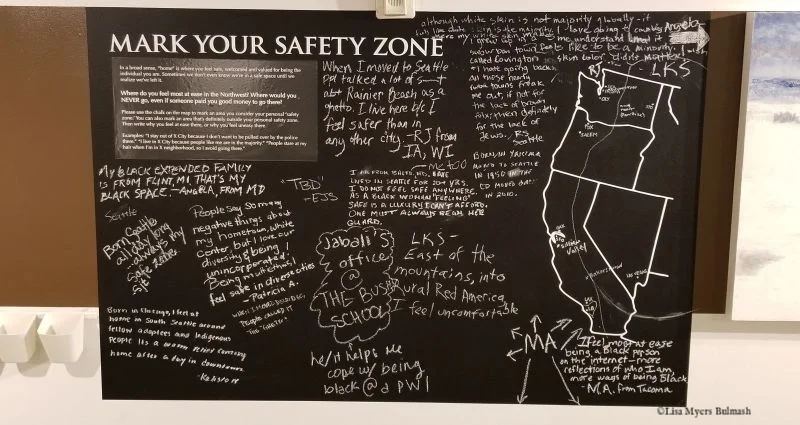 MARK YOUR SAFETY ZONE
In a broad sense, "home" is where you feel safe, welcomed and valued for being the
individual you are. Sometimes we don't even know we're in a safe space until we
realize we've left it.
Where do you feel most at ease in the Northwest? Where would you
NEVER go, even if someone paid you good money to go there?
Please use the chalk on the map to mark an area you consider your personal "safety
zone." You can also mark an area that's definitely outside your personal safety zone.
Then write why you feel at ease there, or why you feel uneasy there.
Examples: "I stay out of X City because I don't want to be pulled over by the police
there." "I live in X City because people like me are in the majority." "People stare at my
hair when I'm in X neighborhood, so I avoid going there."
When I moved to Seattle
ppl talked a lot of s—t
abt Rainier Beach as a
ghetto. I live here b/c I
feel safer than in
any other city. -RJ from
IA, WI
- me too
although white skin is not majority globally - it
Angela
LKS
RJ
skin color didn't matter!
me out if not for
the lack of brown
for the lack of
Jews. RS
Seattle
BORN IN YAKIMA
MOVED TO SEATTLE
IN 1950
IN 2010.
MY BLACK EXTENDED FAMILY
IS FROM FLINT, MI. THAT'S MY
BLACK SPACE - ANGELA, FROM MD
"TBD"
-EJS
I AM FROM BALTO, MD. HAVE
LIVED IN SEATTLE FOR 20+ YRS.
I DO NOT FEEL SAFE ANYWHERE
AS A BLACK WOMAN. "FEELING"
SAFE IS A LUXURY I CAN'T AFFORD.
ONE MUST ALWAYS BE ON HER
GUARD.
Seattle
Born Seattle
all day long
always my
safe
People say so many
negative things about
my hometown, white
center, but I love our
diversity & being
unincorporated.
Being multiethnic I
feel safe in diverse cities
- Patricia A.
PEOPLE CALLED IT
THE "GHETTO"
Jabali's
office
@
THE BUSH
SCHOOL
he/it helps me
cope w/ being
black @ a PWI
LKS -
East of the
mountains, into
rural Red America
I feel uncomfortable
Silicon
Valley
Born in Chicago, I feel at
home in South Seattle around
fellow adoptees and Indigenous
People. Its a warm relief coming
home after a day in downtown.
MA
I feel most at ease
being a Black person
on the internet - more
reflections of who I am,
more ways of being Black
-M.A. from Tacoma
©Lisa Myers Bulmash